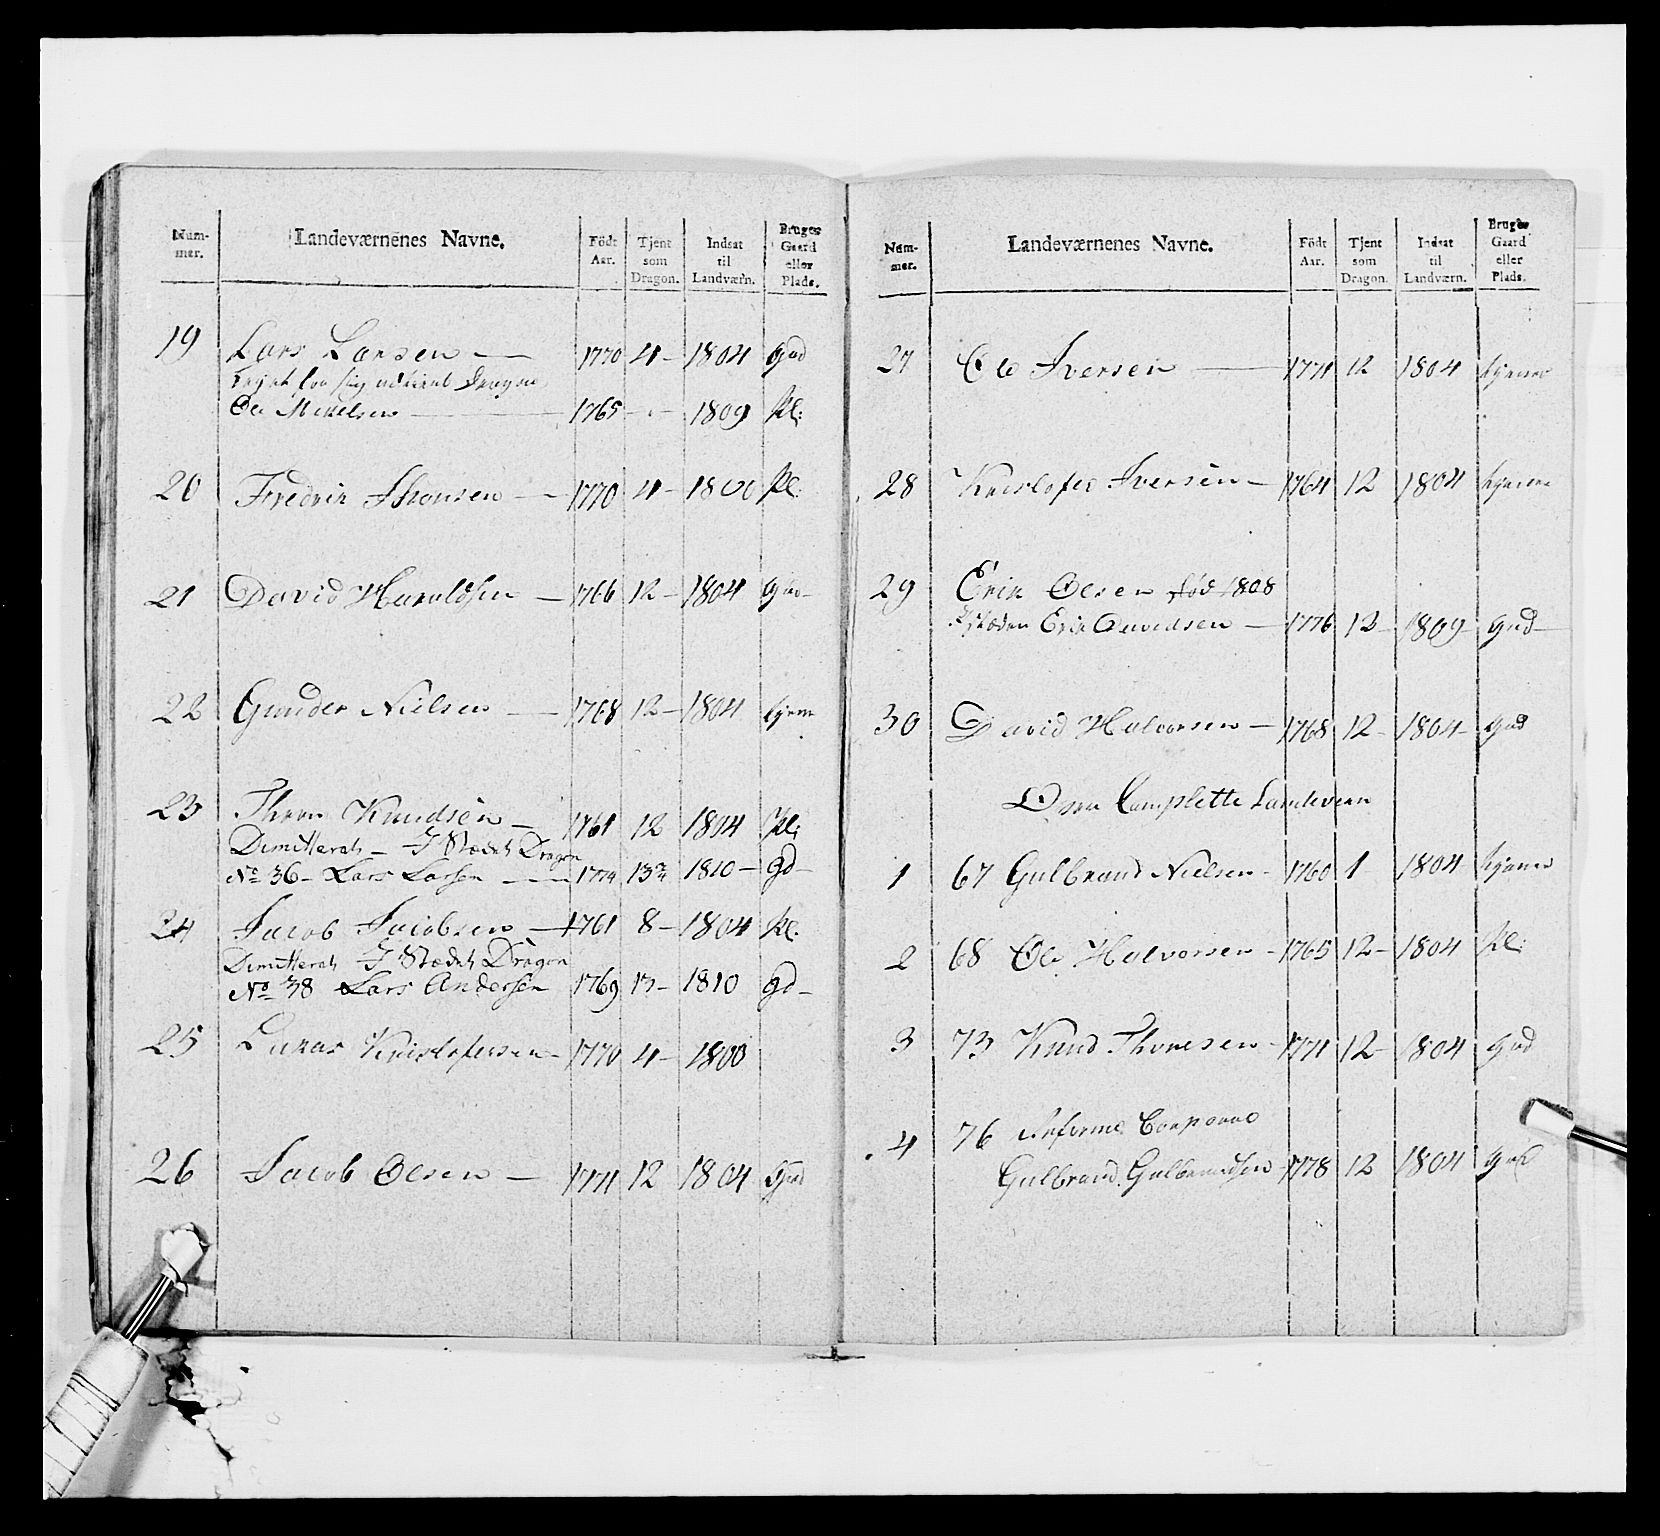 Num-
mer.
Landeværnenes Navne.
Födt
Aar.
Tjent
som
Dragon.
Indsat
til
Landværn.
Bruges
Gaard
eller
Plads.
19 Lars Larsen 1770 4 1804 Grd
Dragon
Ole Mikkelsen 1765 1809 Pl:
20 Fredrik 1770 4 1800 Pl:
21 David Haraldsen 1766 12 1804
22 Gunder Nielsen 1768 12 1804
23 Knudsen 1761 12 1804 Pl:
Dimitteret I Stædet Dragon
No 36 Lars Larsen 1774 13 1810 Gd
24 Jacob Jacobsen 1761 8 1804 Pl:
Dimitteret I Stædet Dragon
No 38 Lars Andersen 1769 13 1810 Gd
25 Lukas Kristofersen 1770 4 1800
26 Jacob Olsen 1771 12 1804
Num-
mer.
Landeværnenes Navne.
Födt
Aar.
Tjent
som
Dragon.
Indsat
til
Landværn.
Bruges
Gaard
eller
Plads.
27 Ole Iversen 1771 12 1804
28 Kristofer Iversen 1764 12 1804
29 Erik Olsen död 1808
Erik 1776 12 1809 Grd
30 David Halvorsen 1768 12 1804 Grd
Complette Landevern
1 67 Gulbrand Nielsen 1760 1 1804
2 68 Ole Halvorsen 1765 12 1804 Pl:
3 73 Knud Thoresen 1771 12 1804 Grd
4 76
Gulbrand Gulbrandsen 1778 12 1804 Grd